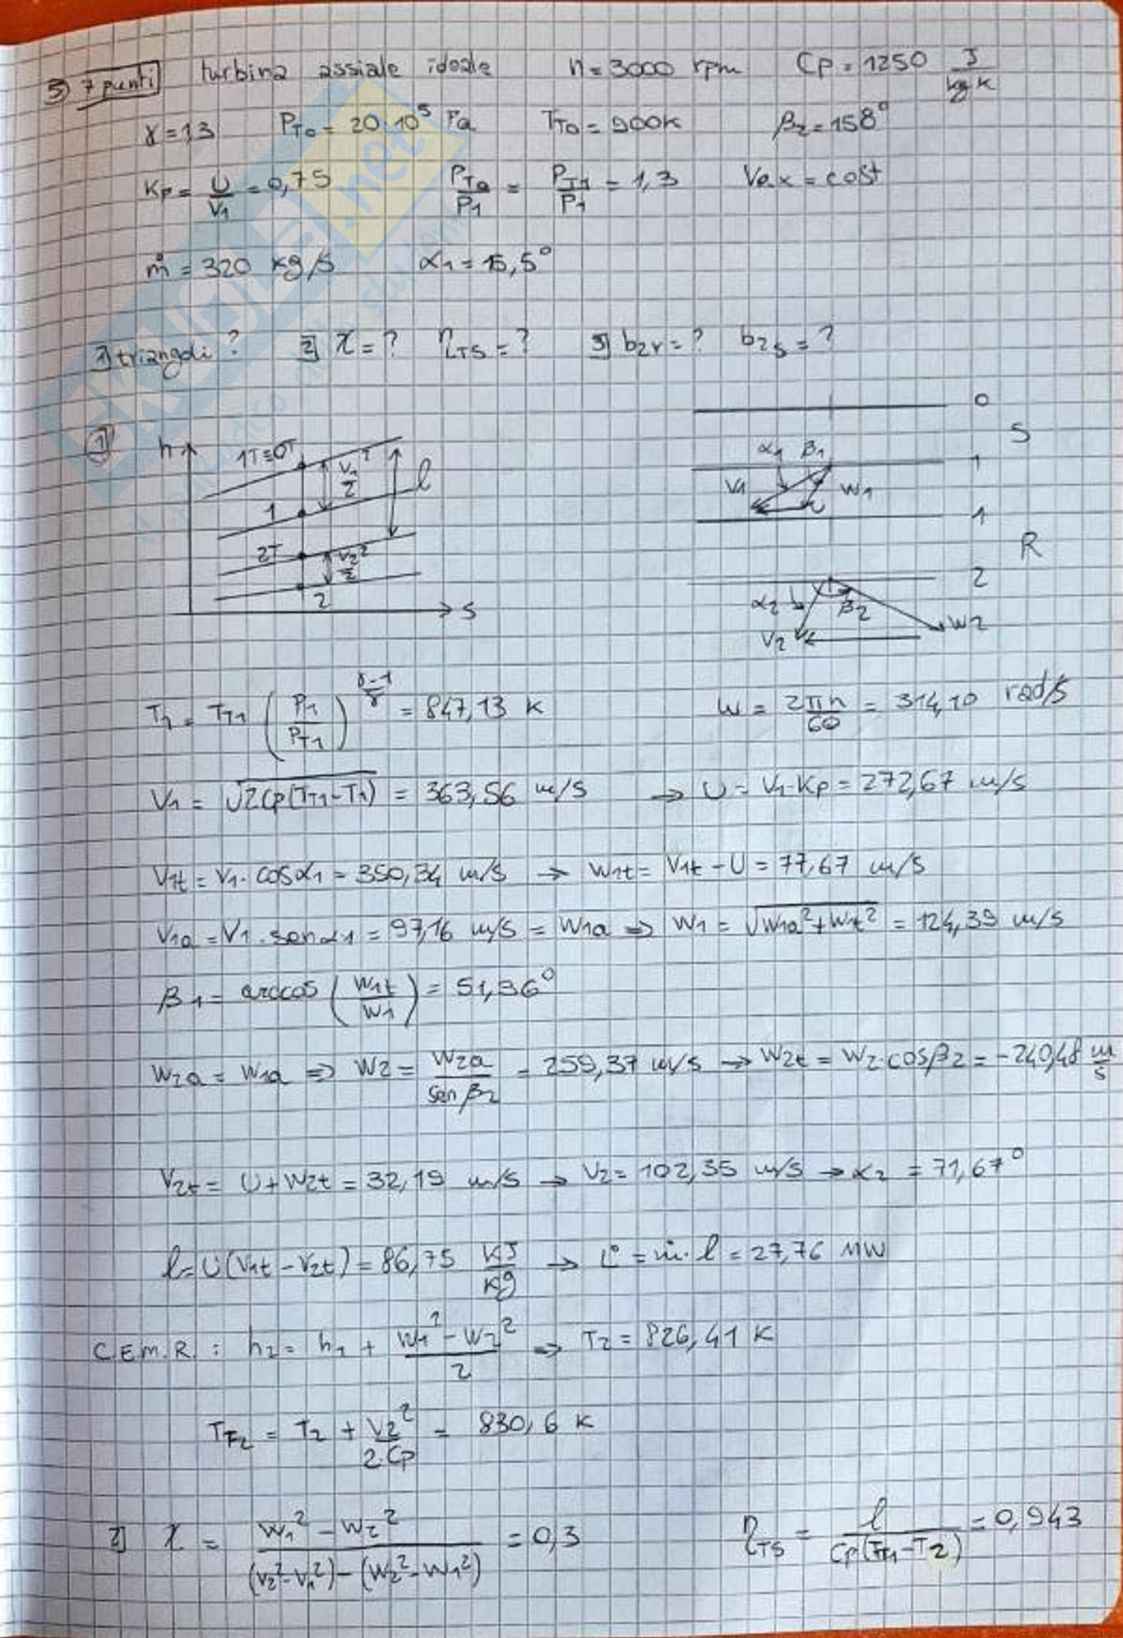 5) 7 punti turbina assiale ideale n = 3000 rpm Cp = 1250 J/kg K
γ = 1,3 PT0 = 20·10^5 Pa TT0 = 900K β2 = 158°
Kp = U/V1 = 0,75 PT0/P1 = PT1/P1 = 1,3 Vax = cost
ṁ = 320 kg/s α1 = 15,5°
1) triangoli ? 2) χ = ? ηTS = ? 3) b2r = ? b2s = ?
1)
h 1T≡0T V1²/2 l 1 2T V2²/2 2 s
0 S 1 α1 β1 V1 W1 U 1 R 2 α2 β2 V2 W2
T1 = TT1 (P1/PT1)^((γ-1)/γ) = 847,13 K ω = 2πn/60 = 314,10 rad/s
V1 = √2Cp(TT1-T1) = 363,56 m/s → U = V1·Kp = 272,67 m/s
V1t = V1·cosα1 = 350,34 m/s → W1t = V1t - U = 77,67 m/s
V1a = V1·senα1 = 97,16 m/s = W1a ⇒ W1 = √W1a²+W1t² = 124,39 m/s
β1 = arccos (W1t/W1) = 51,36°
W2a = W1a ⇒ W2 = W2a/senβ2 = 259,37 m/s → W2t = W2·cosβ2 = -240,48 m/s
V2t = U + W2t = 32,19 m/s → V2 = 102,35 m/s → α2 = 71,67°
l = U(V1t - V2t) = 86,75 kJ/kg → L° = ṁ·l = 27,76 MW
C.E.M.R. : h2 = h1 + (W1² - W2²)/2 ⇒ T2 = 826,41 K
TT2 = T2 + V2²/2Cp = 830,6 K
2) χ = (W1² - W2²)/((V2²-V1²) - (W2²-W1²)) = 0,3 ηTS = l/Cp(TT1-T2) = 0,943